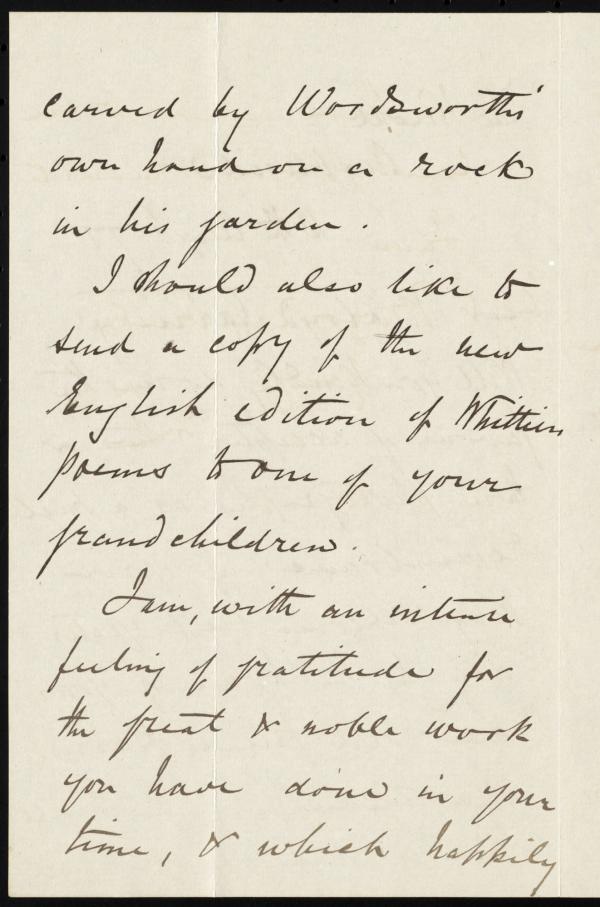 carved by Wordsworths'
own hand on a rock
in his garden.
I should also like to
send a copy of the new
English edition of Whittiers
poems to one of your
grandchildren.
I am, with an intense
feeling of gratitude for
the great & noble work
you have done in your
time, & which happily